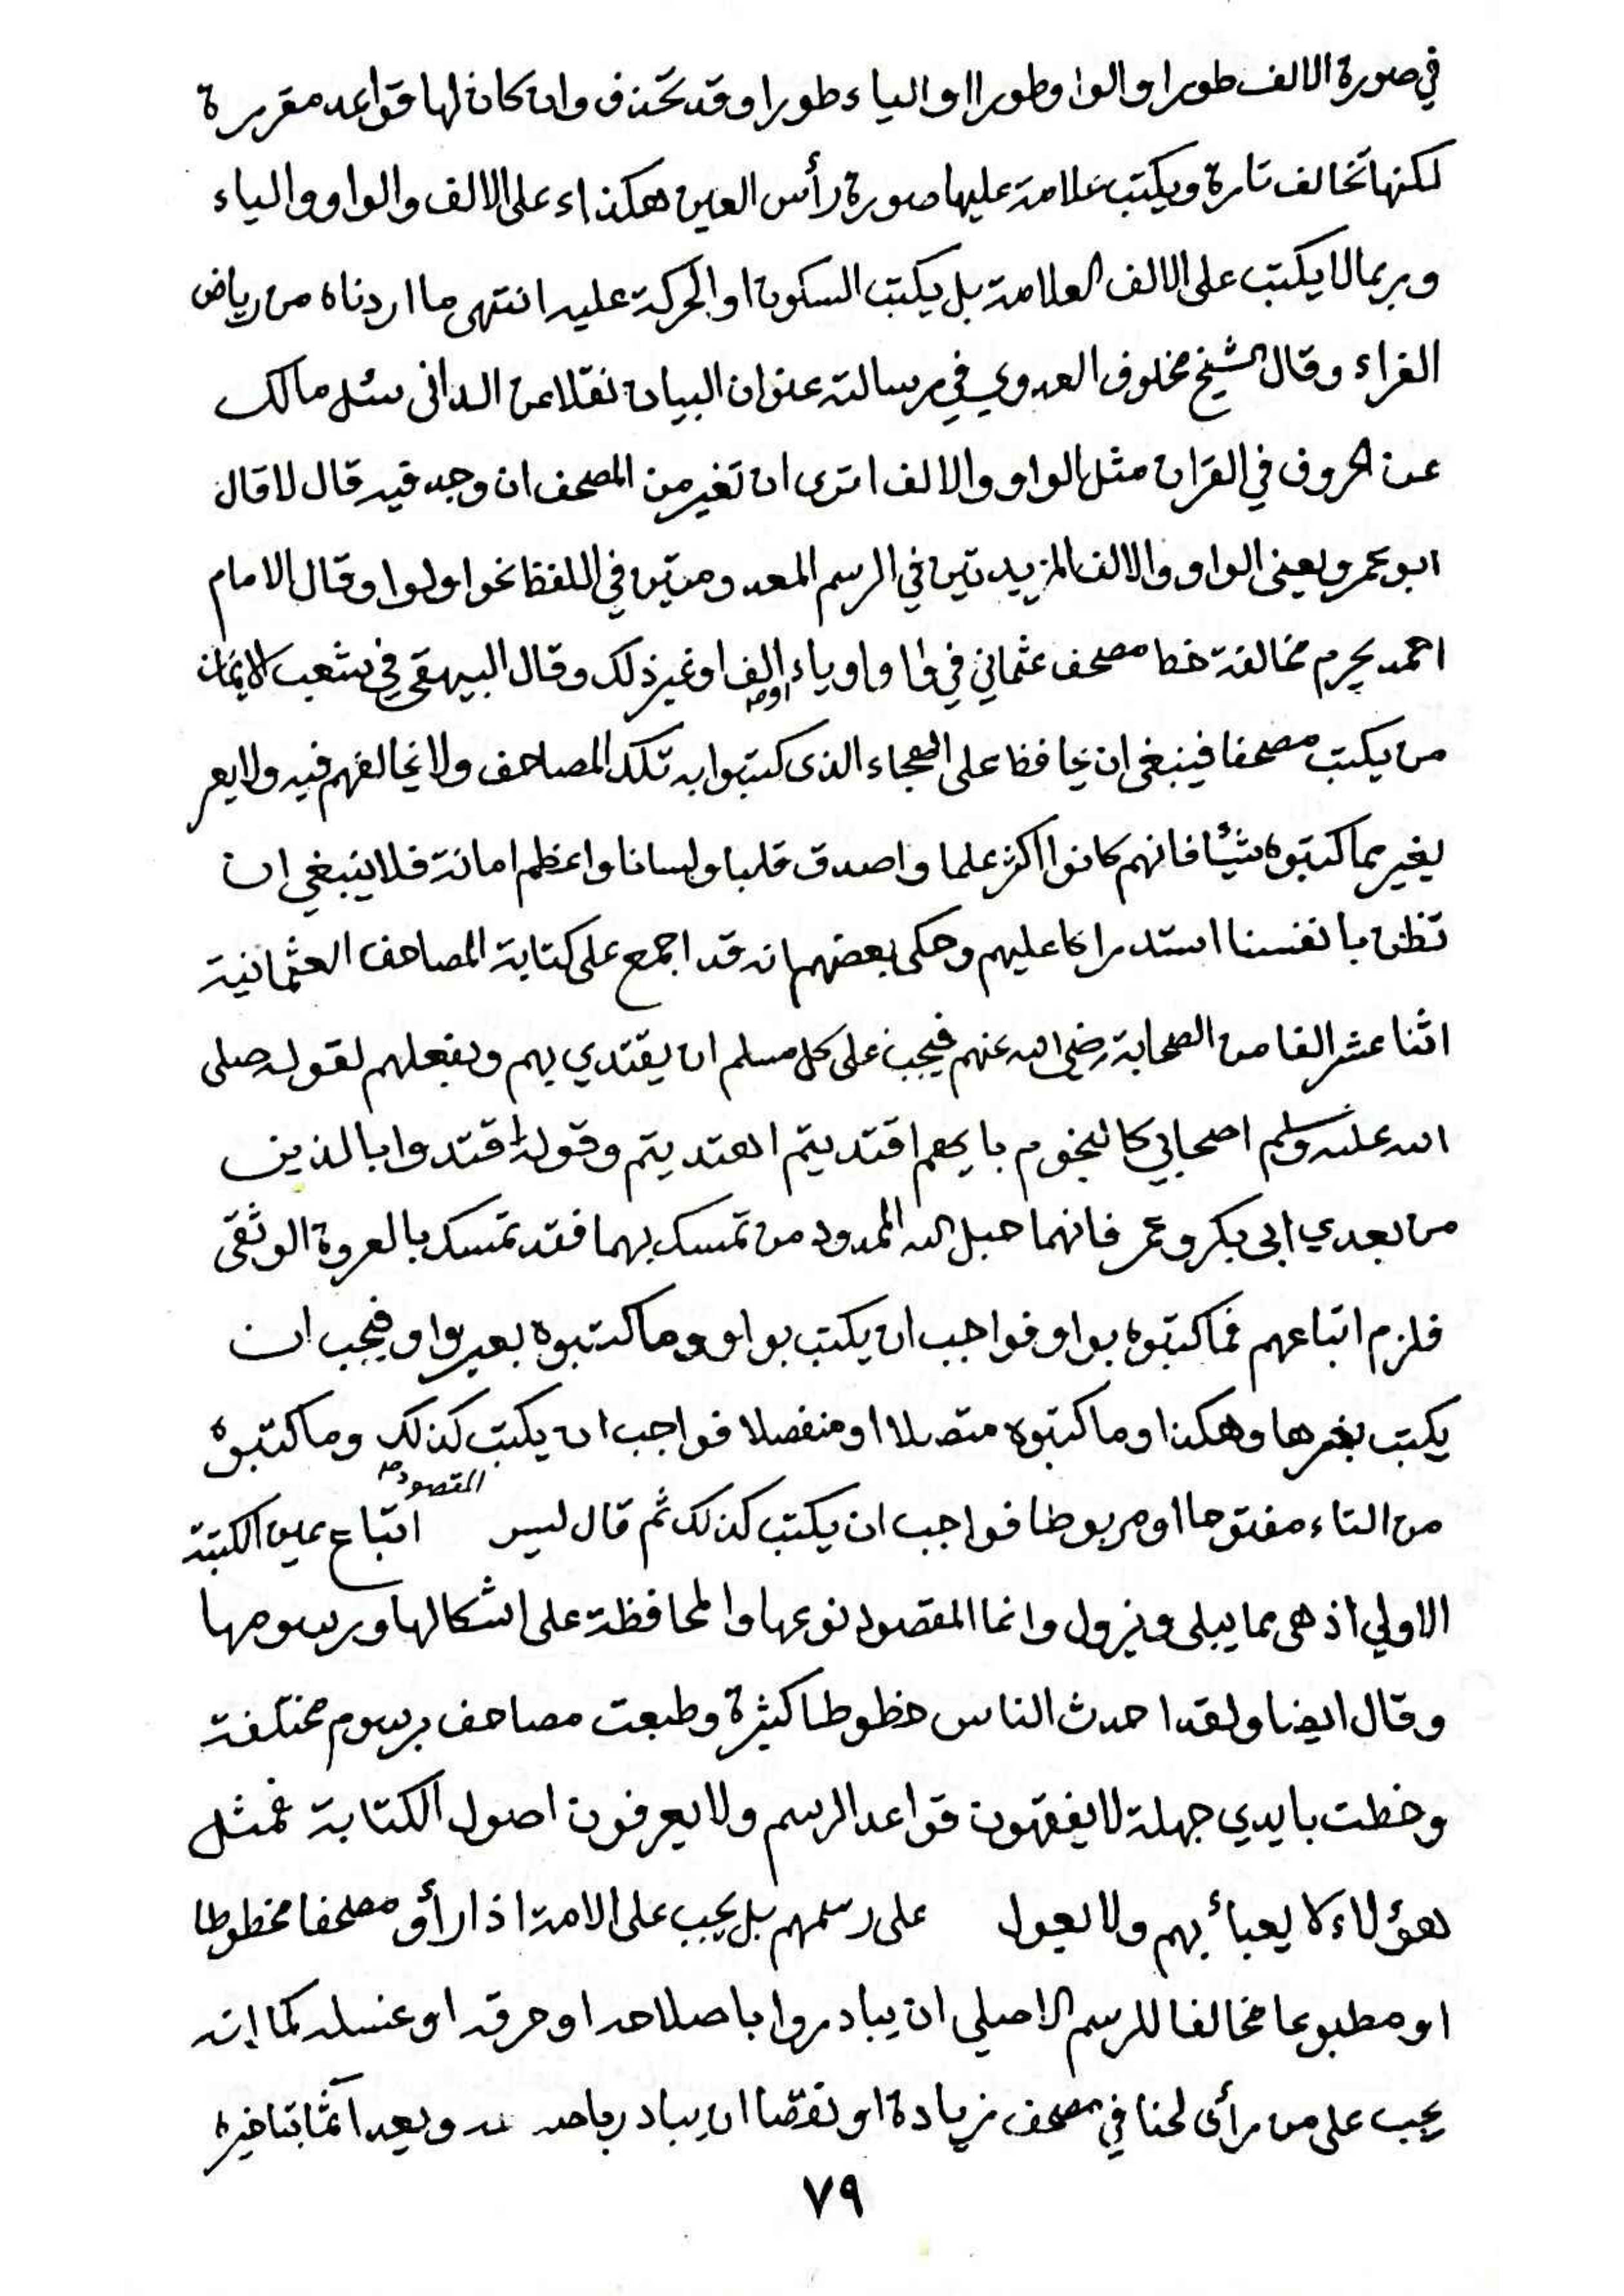 في صورة الالف طورا والواو طورا او الياء طورا وقد تحذف وان كان لها قواعد مقررة
لكنها تخالف تارة ويكتب علامة عليها صورة رأس العين هكذا ء على الالف والواو والياء
وربما لا يكتب على الالف العلامة بل يكتب السكون او الحركة عليه انتهى ما اردناه من رياض
القراء وقال الشيخ مخلوف العدوي في رسالته عنوان البيان نقلا عن الدانى سئل مالك
عن الحروف في القران مثل الواو والالف اترى ان تغير من المصحف ان وجد فيه قال لا قال
ابو عمرو يعنى الواو والالف المزيدتين في الرسم المعدومتين في اللفظ نحو اولوا وقال الامام
احمد يحرم مخالفة خط مصحف عثماني في واو او ياء او الف او غير ذلك وقال البيهقى في شعب الايمان
من يكتب مصحفا فينبغى ان يحافظ على الهجاء الذى كتبوا به تلك المصاحف ولا يخالفهم فيه ولا يعر
يغير مما كتبوه شيئا فانهم كانوا اكثر علما واصدق قلبا ولسانا واعظم امانة فلا ينبغي ان
تظن بانفسنا استدراكا عليهم وحكى بعضهم انه قد اجمع على كتابة المصاحف العثمانية
اثنا عشر الفا من الصحابة رضي الله عنهم فيجب على كل مسلم ان يقتدي بهم وبفعلهم لقوله صلى
الله عليه وسلم اصحابي كالنجوم بايهم اقتديتم اهتديتم وقوله اقتدوا بالذين
من بعدي ابى بكر وعمر فانهما حبل الله الممدود من تمسك بهما فقد تمسك بالعروة الوثقى
فلزم اتباعهم فما كتبوه بواو فواجب ان يكتب بواو وما كتبوه بغير واو فيجب ان
يكتب بغيرها وهكذا وما كتبوه متصلا او منفصلا فواجب ان يكتب كذلك وما كتبوه
من التاء مفتوحا او مربوطا فواجب ان يكتب كذلك ثم قال ليس المقصود اتباع عين الكتبة
الاولي اذ هى مما يبلى ويزول وانما المقصود نوعها والمحافظة على اشكالها ورسومها
وقال ايضا ولقد احدث الناس خطوطا كثيرة وطبعت مصاحف برسوم مختلفة
وخطت بايدي جهلة لا يفقهون قواعد الرسم ولا يعرفون اصول الكتابة فمثل
هؤلاء لا يعبأ بهم ولا يعول على رسمهم بل يجب على الامة اذا رأو مصحفا مخطوطا
او مطبوعا مخالفا للرسم الاصلي ان يبادروا باصلاحه او حرقه او غسله كما انه
يجب على من رأى لحنا في مصحف زيادة او نقصا ان يبادر ويعد آثما بتاخيره
٧٩